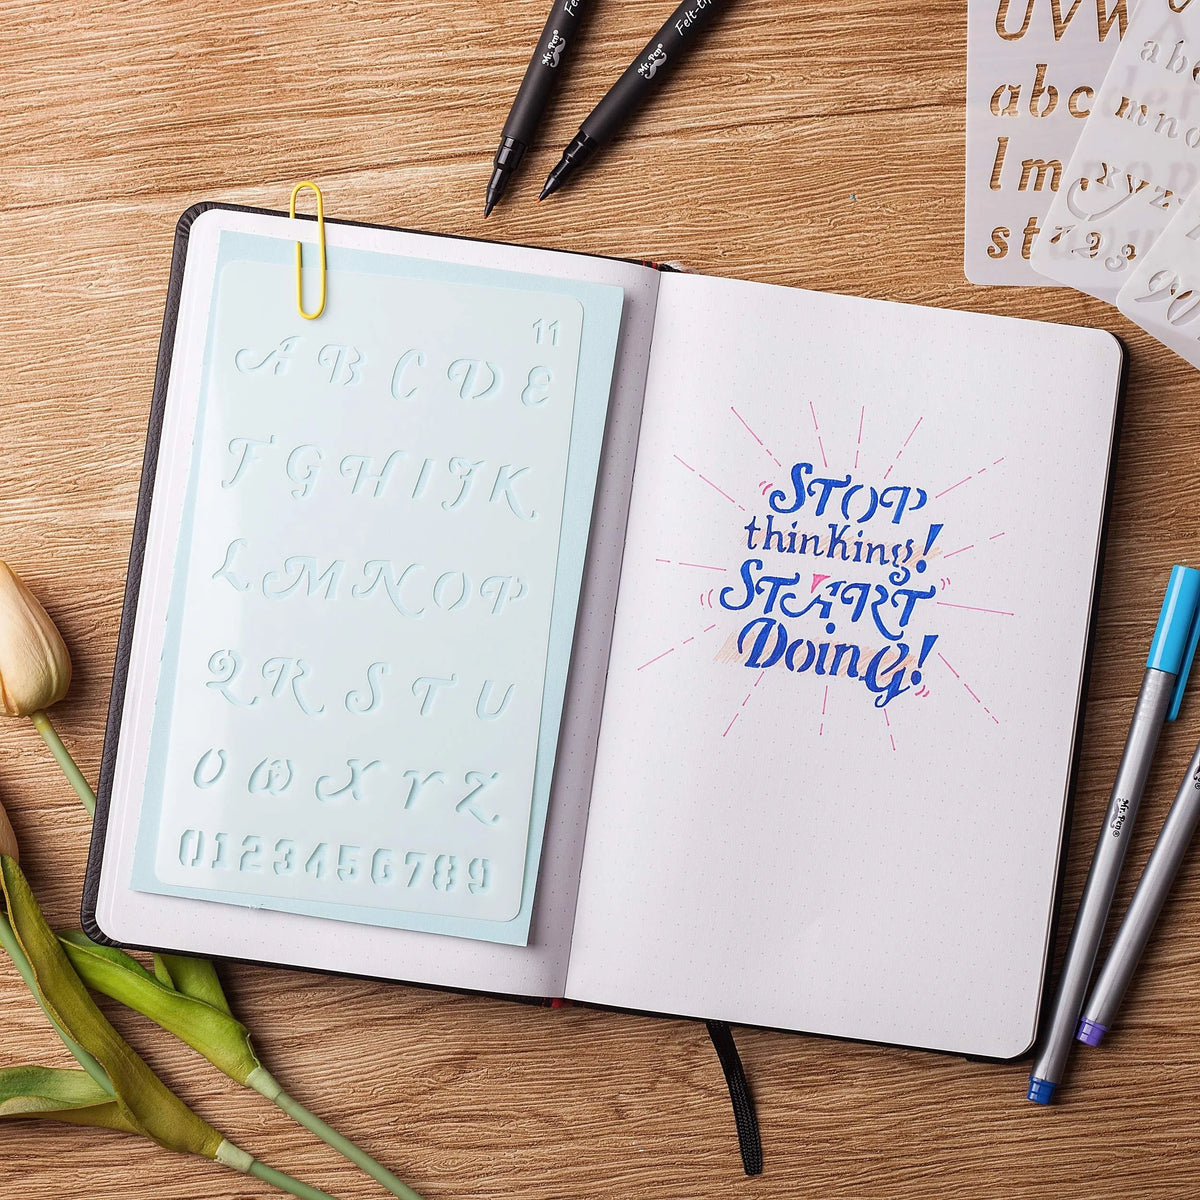 Mr. Pen®
Felt-ti
Mr. Pen®
Felt-tip
UVW
abc
lm
st
abc
mno
xyz
123
90
11
A B C D E
F G H I J K
L M N O P
Q R S T U
X Y Z
0123456789
STOP
thinking!
START
Doing!
Mr. Pen®